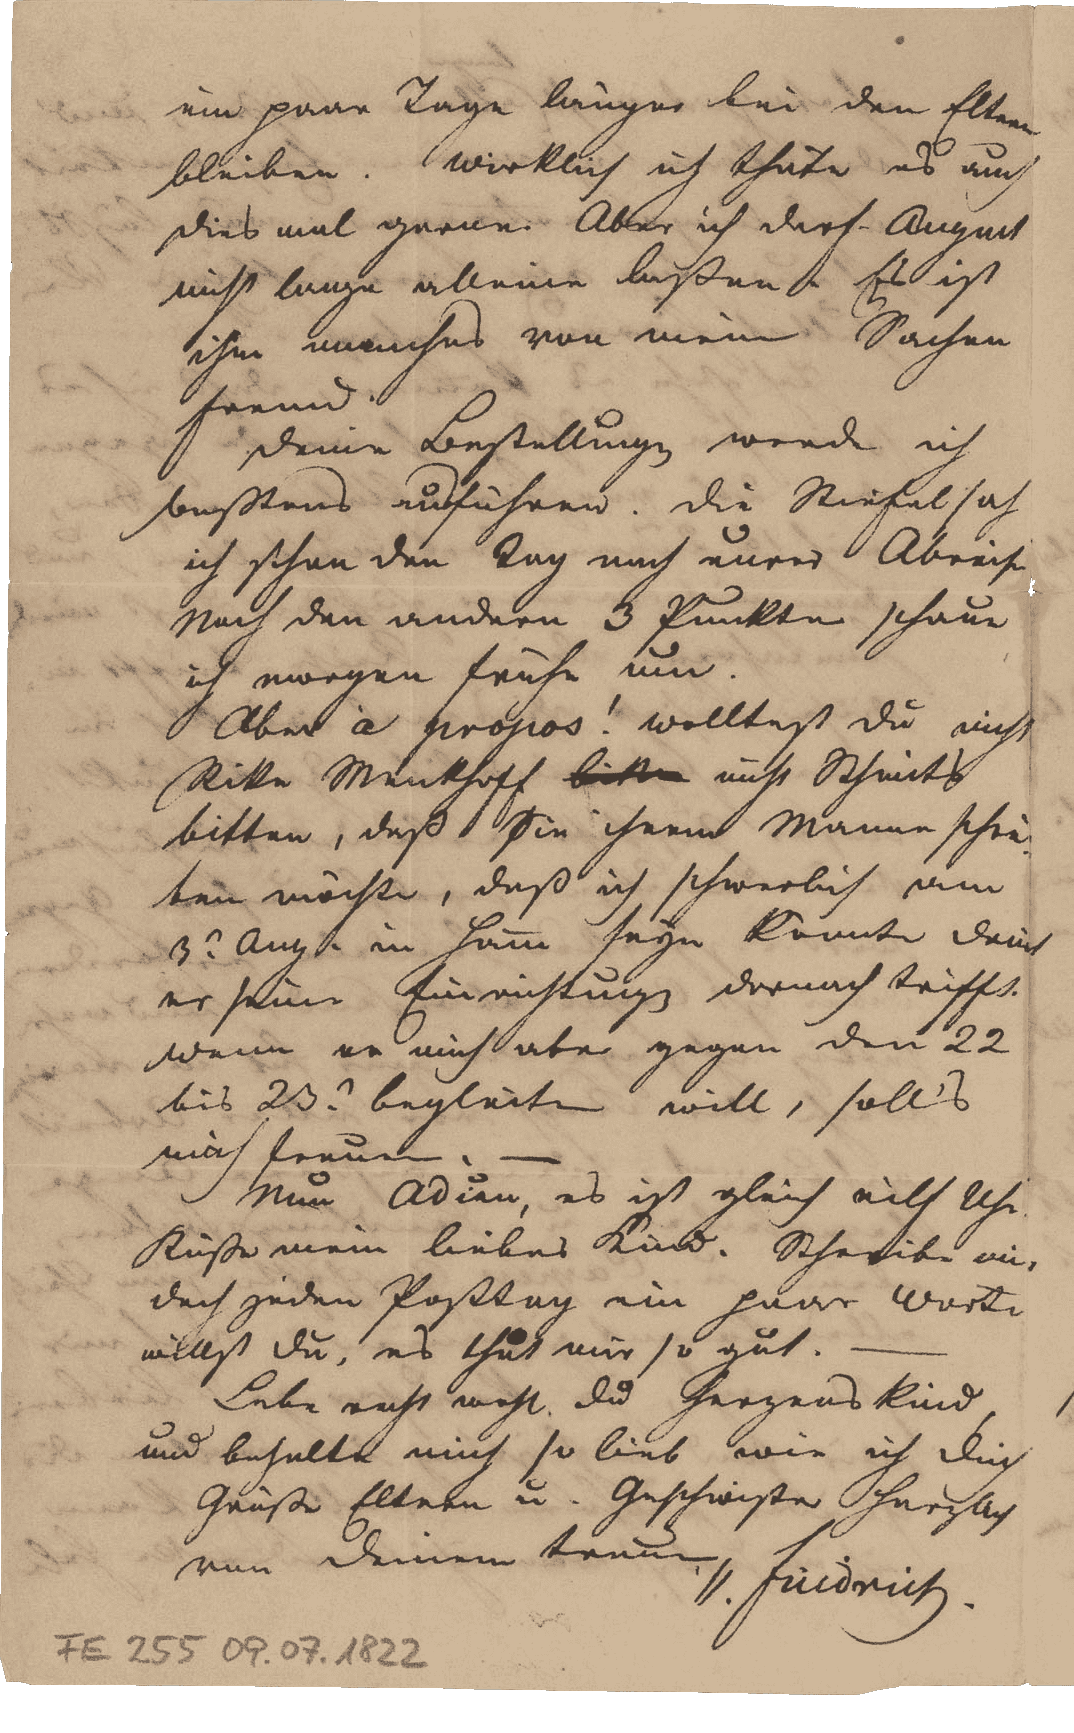 ein paar Tage länger bei den Eltern
bleiben. Wirklich ich thäte es auch
dies mal gerne. Aber ich darf August
nicht lange alleine laßen. Es ist
ihm manches von meinen Sachen
fremd.
Deine Bestellungen werde ich
bestens ausführen. Die Stiefel sah
ich schon den Tag nach eurer Abreise
Nach den andern 3 Punkten schaue
ich morgen frühe um.
Aber à propos! wolltest du nicht
Rike Menkhoff bitten nicht
bitten, daß Sie ihrem Manne schrei-
ben möchte, daß ich schwerlich am
3t Aug. in Hamm seyn könnte damit
er seine Einrichtungen darnach trifft.
wenn er mich aber gegen den 22
bis 23t begleiten will, soll's
mich freuen. —
Nun Adieu, es ist gleich eilf Uhr.
Küße mein liebes Kind. Schreibe mir
doch jeden Posttag ein paar Worte
willst du, es thut mir so gut. —
Lebe recht wohl du Herzenskind,
und behalte mich so lieb wie ich dich
Grüße Eltern u. Geschwister herzlich
von deinem treuen
Friedrich.
FE 255 09.07.1822